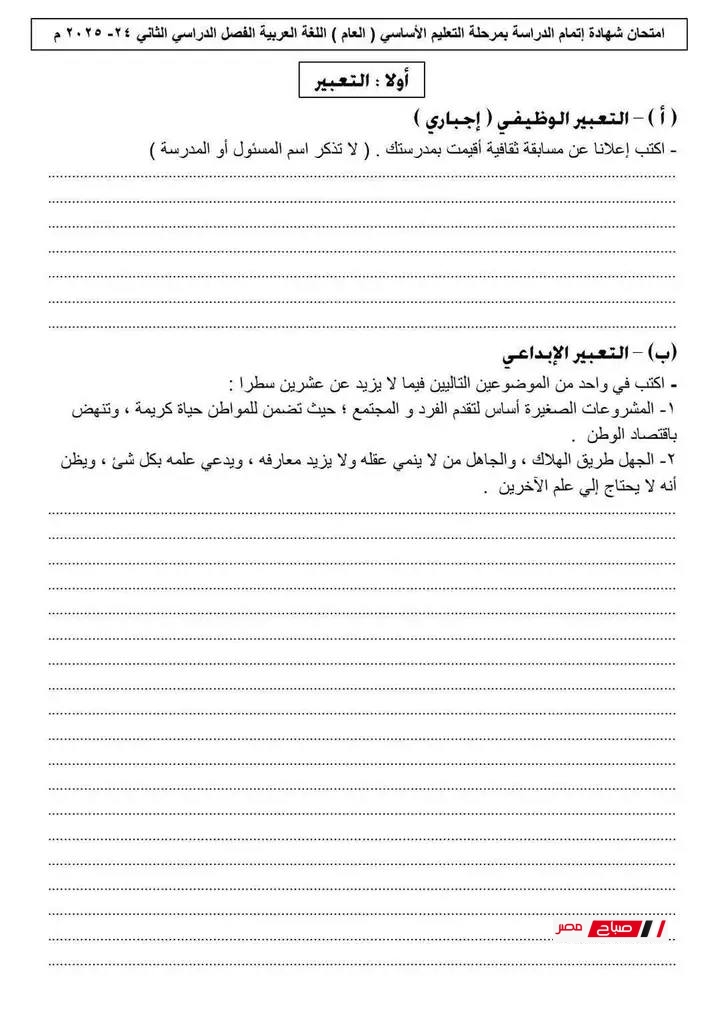 امتحان شهادة إتمام الدراسة بمرحلة التعليم الأساسي ( العام ) اللغة العربية الفصل الدراسي الثاني ٢٤- ٢٠٢٥ م
أولا : التعبير
( أ ) – التعبير الوظيفي ( إجباري )
- اكتب إعلانا عن مسابقة ثقافية أقيمت بمدرستك . ( لا تذكر اسم المسئول أو المدرسة )
(ب) – التعبير الإبداعي
- اكتب في واحد من الموضوعين التاليين فيما لا يزيد عن عشرين سطرا :
١- المشروعات الصغيرة أساس لتقدم الفرد و المجتمع ؛ حيث تضمن للمواطن حياة كريمة ، وتنهض
باقتصاد الوطن .
٢- الجهل طريق الهلاك ، والجاهل من لا ينمي عقله ولا يزيد معارفه ، ويدعي علمه بكل شئ ، ويظن
أنه لا يحتاج إلي علم الآخرين .
صباح مصر